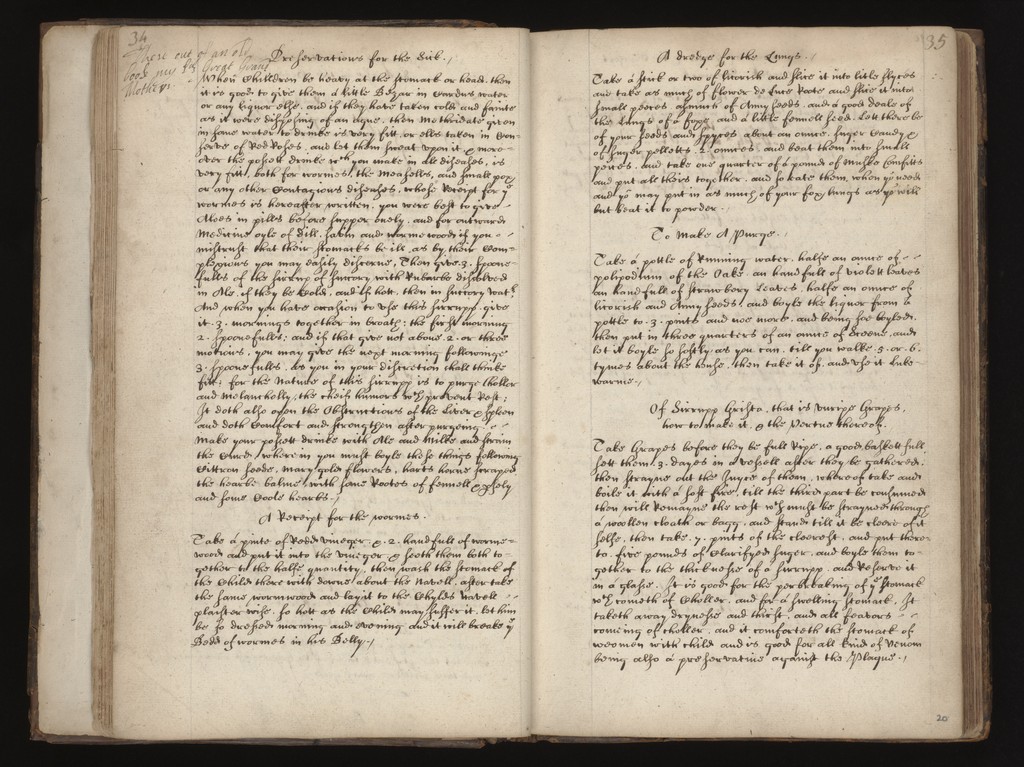 34
These out of an old
book my Lady Great Grand
Mother
Preservations for the Sick.
When Children be heavy at the stomack or head, then
it is good to give them a little Bezar in Carduus water
or any liquor else. and if they have taken cold, and fainte
as it were disposing of an Ague, then Methridate given
in same water to drinke is very fitt, or ells taken in Con-
serve of Red Roses, and let them sweat upon it. & more-
over the possett drinke wch you make in all diseases, is
very fitt, both for wormes, the Measells, and small pox
or any other Contagious diseases, whose Receipt for ye
wormes is hereafter written, you were best to give
Aloes in pills before supper onely, and for outward
Medicine oyle of Dill, savin and wormewood; if you
mistrust that their stomacks be ill, as by their Com-
plexions you may easily discerne, Then give 3. spoone
fulls of the sirrup of Succory with Rubarbe dissolved
in Ale, if they be Cold, and if hott, then in Succory watr.
And when you have occasion to use this sirrupp, give
it 3. mornings together in broath; the first morning
2. spoonefulls; and if that give not above 2. or three
motions, you may give the next morning followinge
3. spoonefulls, as you in your discretion shall thinke
fitt; for the Nature of this sirrupp is to purge Choller
and Melancholly, the cheife humors wch prevent Rest;
It doth also open the Obstructions of the Liver & spleen
and doth Comfort and strengthen after purgeing.
Make your possett drinke with Ale and Milke, and straine
the Curd, wherein you must boyle these things following
Cittron seeds, mary gold flowers, harts horne scraped
the hearbe balme, with some Rootes of fennell & psely
and some Coole hearbs.
A Receipt for the wormes.
Take a pinte of Redd vineger, & 2. handfull of worme-
wood and put it into the vineger & seeth them both to-
gether to the halfe quantity, then wash the stomack of
the Child there with downe about the Navell, after take
the same wormwood and lay it to the Chylds Navell
plaister wise, so hott as the Child may suffer it, let him
be so dressed morning and evening and it will breake ye
Bedd of wormes in his Belly.
35
A dredge for the Lungs.
Take a stick or two of licorish and slice it into litle slyces
and take as much of flower de Luce Roote and slice it into
small peeces, asmuch of Anny seeds, and a good deale of
the Lungs of a foxe, and a litle fennell seed. Lett there be
of your seeds and spyces about an ounce. Suger Candy &
of suger pelletts. 2. ounces, and beat them into small
peices. and take one quarter of a pound of Muske Comfitts
and put all theis together, and so eate them, when yo need
and yo may put in as much of your fox lungs as yo will
but beat it to powder.
To Make A Purge.
Take a pottle of Running water, halfe an ounce of
polipodium of the Oake an handfull of violett leaves
an handfull of strawbery Leaves, halfe an ounce of
licorish and Anny seeds, and boyle the liquor from a
pottle to 3. pints and noe more. and being soe boyled,
then put in three quarters of an ounce of Seene, and
let it boyle so softly as you can, till you walke 5. or. 6.
tymes about the house, then take it of, and use it Luke-
warme.
Of Sirrupp Grista, that is unripe Grapes,
how to make it, & the Vertue thereof.
Take Grapes before they be full Ripe, a good baskett full
sett them 3. dayes in a vessell after they be gathered,
then strayne out the Juyce of them, whereof take and
boile it with a soft fire, till the third part be consumed
then will Remayne the rest wch must be strayned through
a woollen cloath or bagg, and stand till it be cleere of it
selfe, then take 7. pints of the cleerest, and put there-
to five pounds of Clarifyed suger, and boyle them to-
gether to the thicknesse of a sirrupp, and Reserve it
in a glasse. It is good for the perbreaking of ye stomack
wch cometh of Choller, and for a swelling stomack. It
taketh away drynesse and thirst, and all feavors
comeing of choller, and it comforteth the stomack of
weomen with child and is good for all kind of Venom
being also a preservative against the Plague.
20